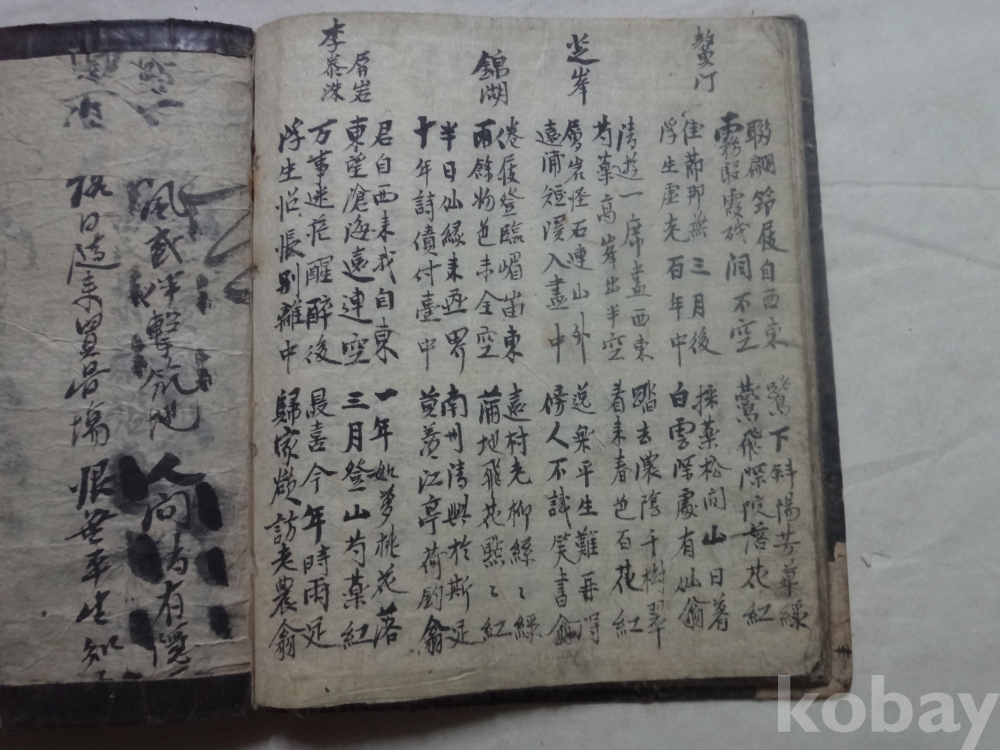 鰲汀
聯翩筇屐自西東 鷺下斜陽芳草綠
霧 霞磯洞不空 鶯飛深院落花紅
佳節那無三月後 採藥松間山日暮
浮生虛老百年中 白雲深處有仙翁
芝峯
清遊一席盡西東 踏去濃陰千樹翠
芍藥高岸出半空 看来春色百花紅
層岩怪石連山外 平生難再得
遠浦短溪入畫中 傍人不識笑書翁
錦湖
倦屐登臨嵋 東 遠村老柳絲〻綠
雨餘物色未全空 蒲地飛花點〻紅
半日仙緣来 界 南州清興於斯足
十年詩債付臺中 莫羨江亭荷釣翁
眉岩
李泰洙
君自西来我自東 一年如夢桃花落
東望滄海遠連空 三月登山芍藥紅
万事迷茫醒醉後 最喜今年時雨足
浮生怊悵別離中 歸家 訪老農翁
風 擊筑地 人間尚有
日 来買 場 恨無平生知
kobay